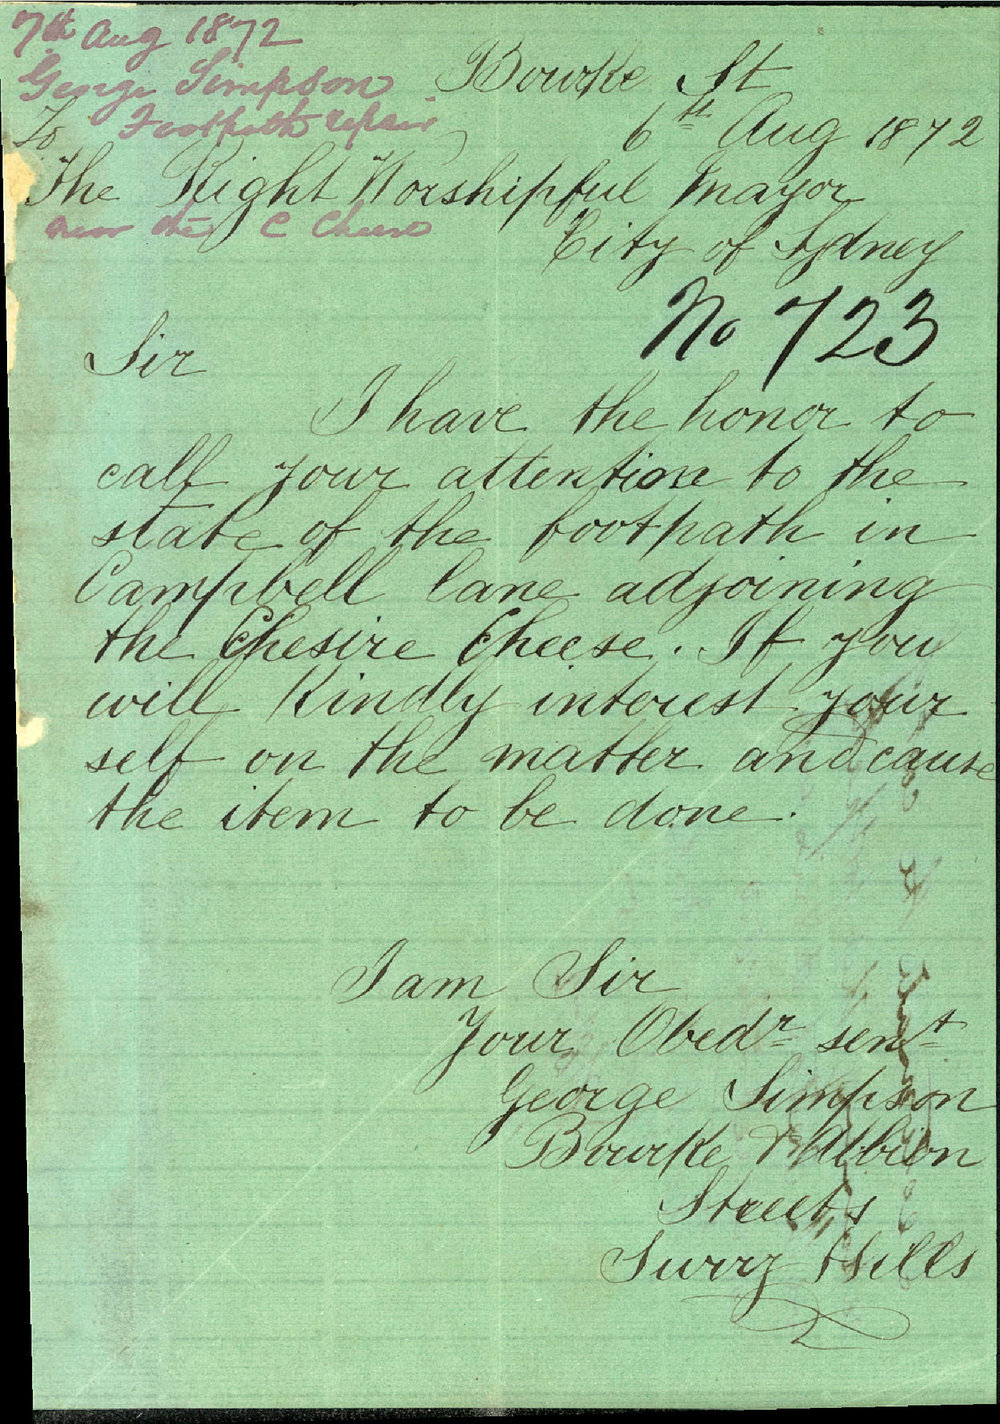 7th Aug 1872
George Simpson
Footpath repair
near the C Cheese
Bourke St
6th Aug 1872
To
The Right Worshipful Mayor
City of Sydney
No 723
Sir
I have the honor to
call your attention to the
state of the footpath in
Campbell lane adjoining
the Chesire Cheese. If you
will Kindly interest your
self on the matter and cause
the item to be done.
I am Sir
Your Obedr sent
George Simpson
Bourke & Albion
Streets
Surry Hills